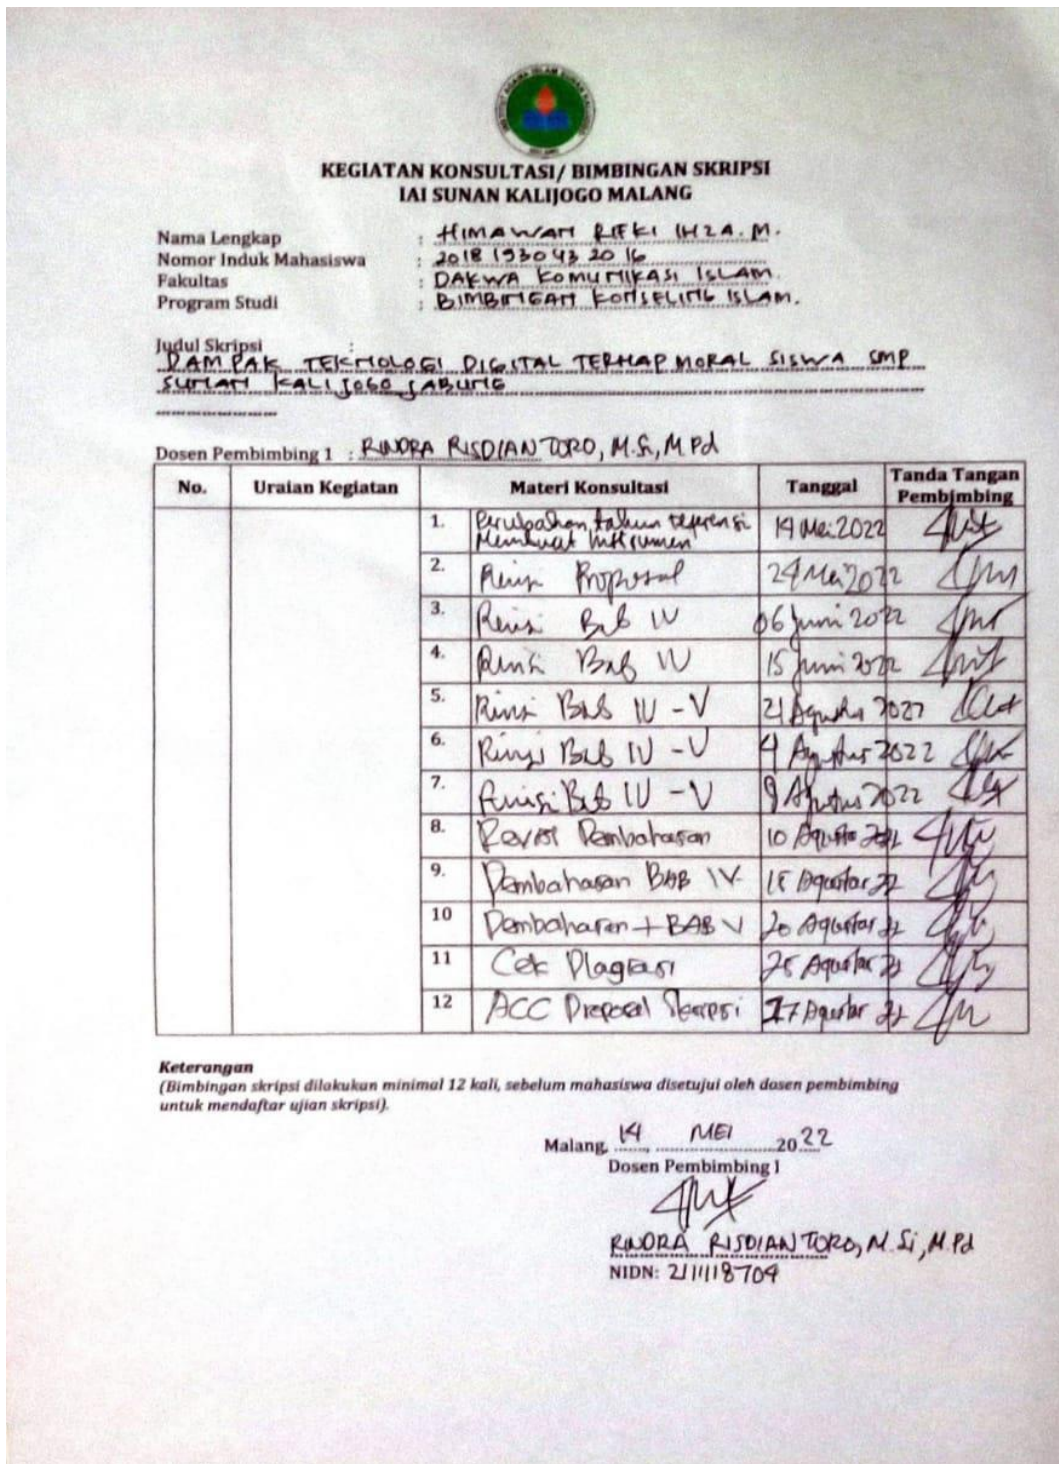 KEGIATAN KONSULTASI/ BIMBINGAN SKRIPSI
IAI SUNAN KALIJOGO MALANG
Nama Lengkap : HIMAWAN RIFKI IHZA. M.
Nomor Induk Mahasiswa : 2018 193043 20 16
Fakultas : DAKWA KOMUNIKASI ISLAM.
Program Studi : BIMBINGAN KONSELING ISLAM.
Judul Skripsi :
DAMPAK TEKNOLOGI DIGITAL TERHAP MORAL SISWA SMP
SUNAN KALIJOGO JABUNG
Dosen Pembimbing 1 : RINDRA RISDIANTORO, M.Si, M.Pd
No. Uraian Kegiatan Materi Konsultasi Tanggal Tanda Tangan Pembimbing
1. Perubahan, tahun referensi 14 Mei 2022
Membuat instrumen
2. Revisi Proposal 24 Mei 2022
3. Revisi Bab IV 06 Juni 2022
4. Revisi Bab IV 15 Juni 2022
5. Revisi Bab IV - V 21 Agustus 2022
6. Revisi Bab IV - V 4 Agustus 2022
7. Revisi Bab IV - V 9 Agustus 2022
8. Revisi Pembahasan 10 Agustus
9. Pembahasan BAB IV Agustus 22
10 Pembahasan + BAB V 20 Agustus 22
11 Cek Plagiasi 25 Agustus 22
12 ACC Proposal Skripsi 27 Agustus 22
Keterangan
(Bimbingan skripsi dilakukan minimal 12 kali, sebelum mahasiswa disetujui oleh dosen pembimbing
untuk mendaftar ujian skripsi).
Malang, 14 MEI 2022
Dosen Pembimbing 1
RINDRA RISDIANTORO, M.Si, M.Pd
NIDN: 2111118704